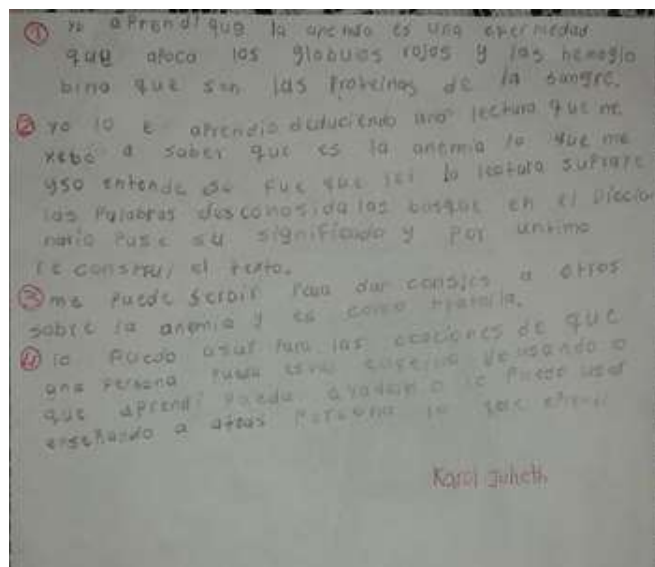 ① yo aprendi que la anemia es una enfermedad
que apoca los globulos rojos y las hemoglo
bina que son las proteinas de la sangre.
② yo lo e aprendio deduciendo una lectura que me
yebo a saber que es la anemia lo que me
yso entende so fue que lei la lectura suprare
las palabras desconosida las busque en el diccio
nario puse su significado y por untimo
reconstrui el texto.
③ me puede serbir para dar consjes a otros
sobre la anemia y es como tratarla.
④ lo puedo usar para las ocaciones de que
una persona pueda estar enferma de usando o
que aprendi pueda ayudar o le puedo usar
enseñando a otras persona lo que aprendi
Karol Julieth